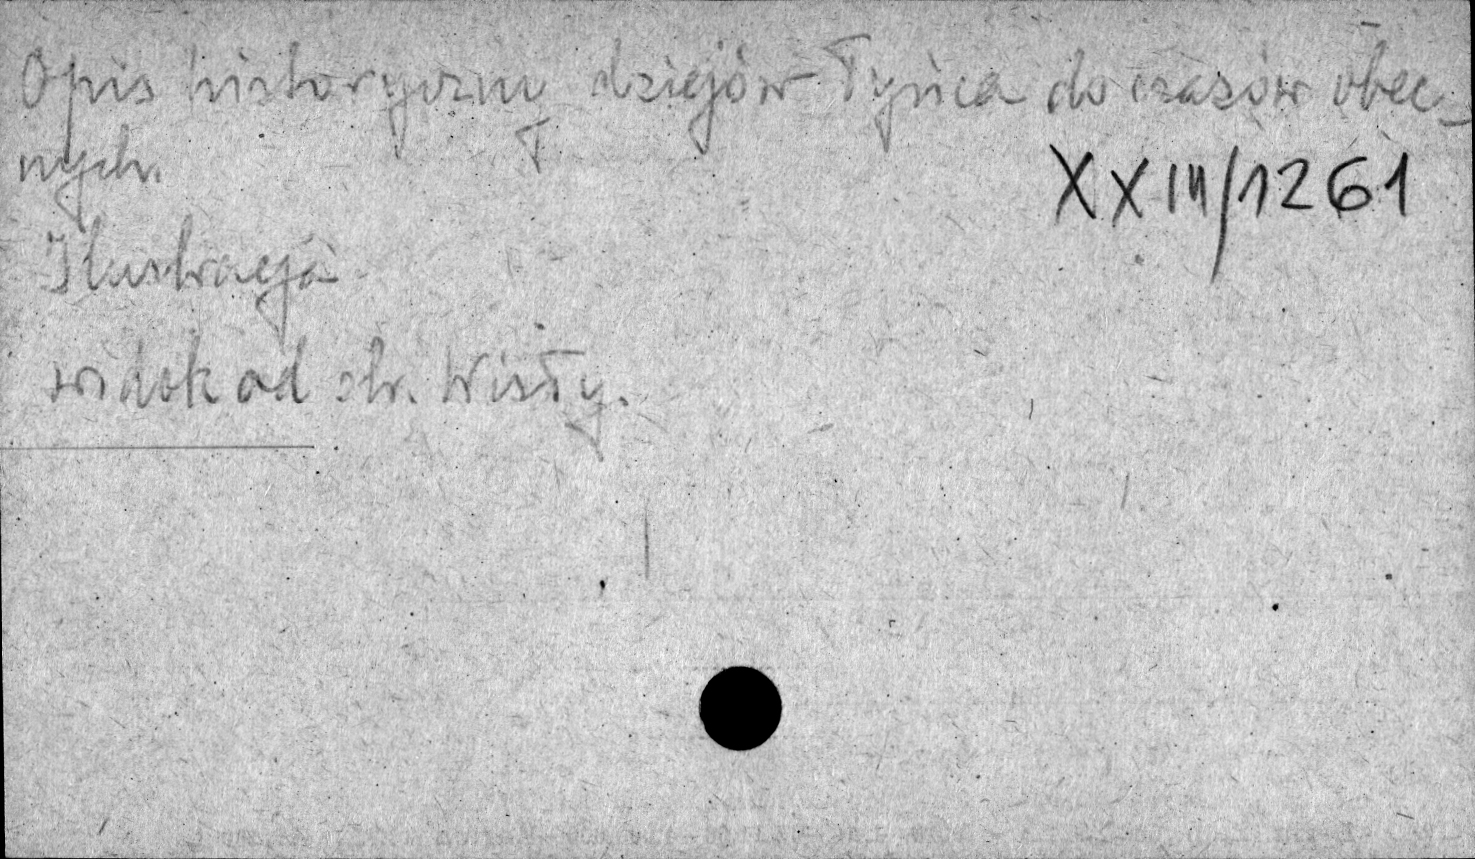 Opis historyczny dziejów Tyńca do czasów obec-
nych.
XXIII/1261
Ilustracja
widok od str. Wisły.